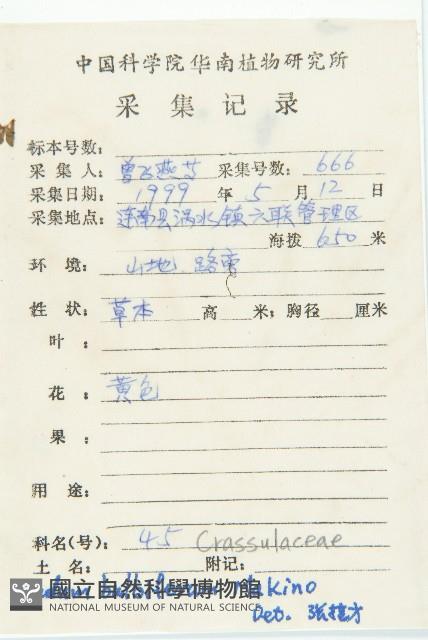 中国科学院华南植物研究所
采集记录
标本号数：
采集人：曾飞燕等 采集号数：666
采集日期：1999年5月12日
采集地点：连南县涡水镇六联管理区
海拨 650 米
环境：山地 路旁
性状：草本 高 米；胸径 厘米
叶：
花：黄色
果：
用途：
科名(号)：45 Crassulaceae
土名： 附记：
Makino
國立自然科學博物館
NATIONAL MUSEUM OF NATURAL SCIENCE
Det.